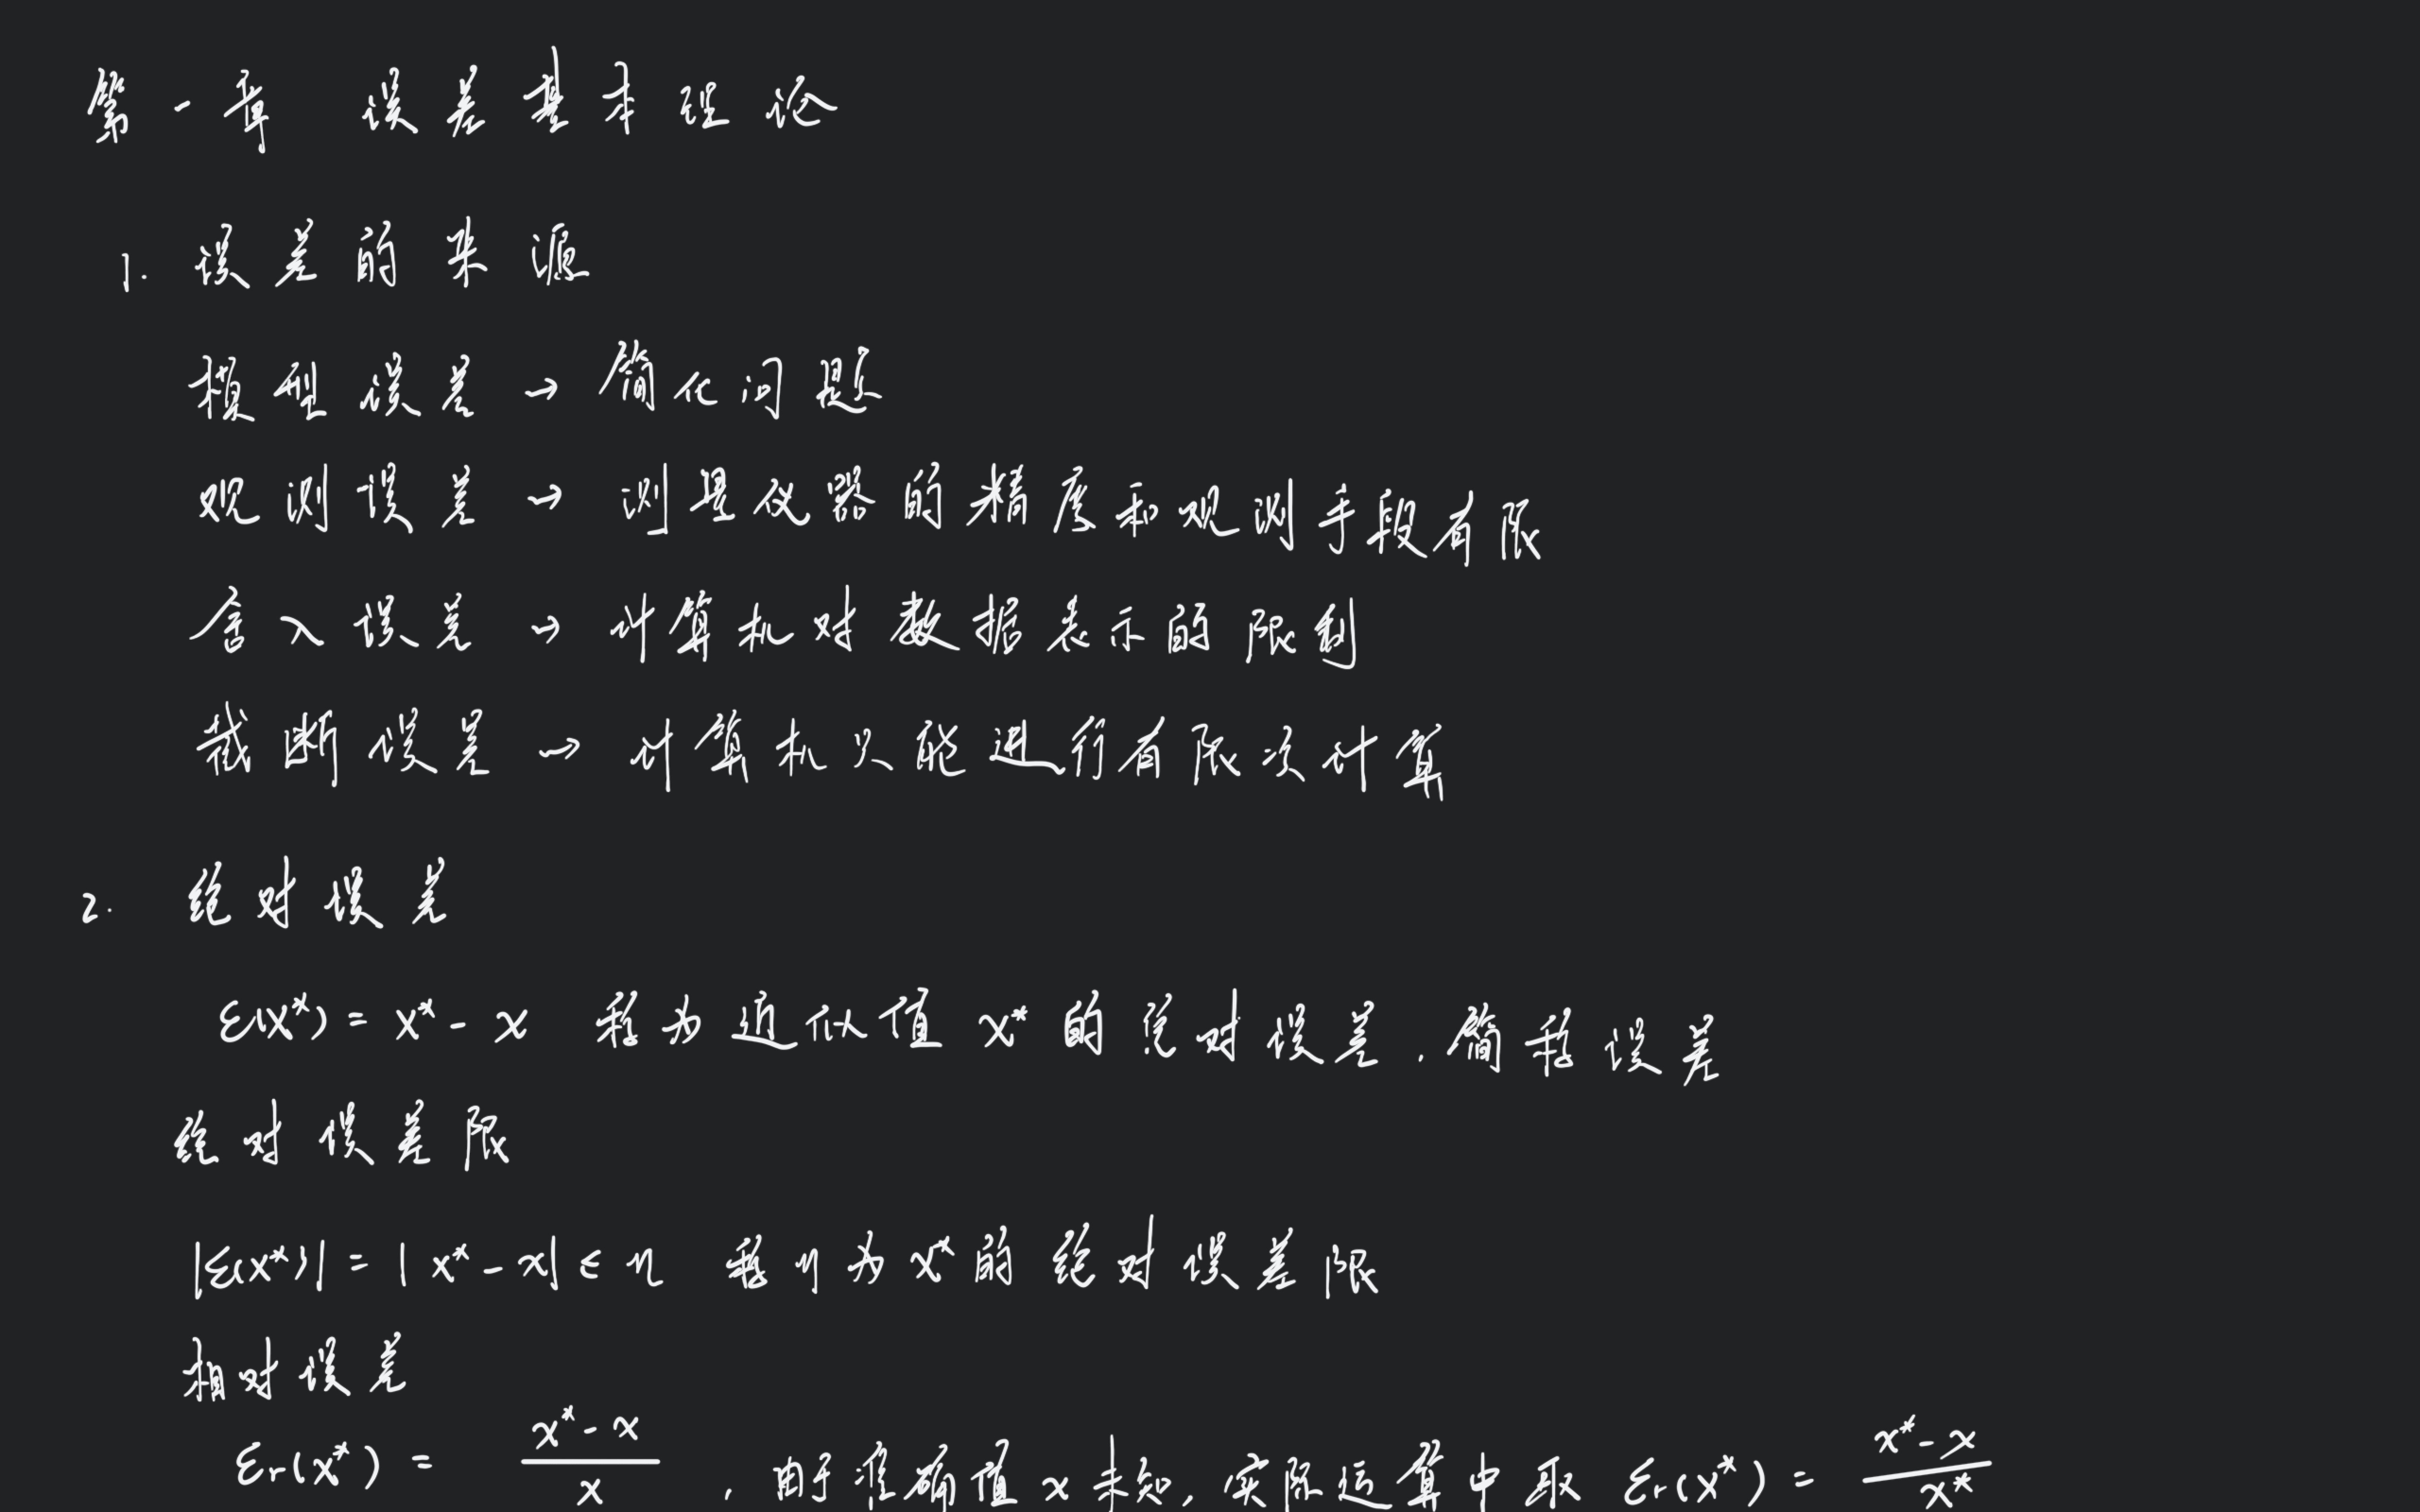 第一章 误差基本理论
1. 误差的来源
模型误差 → 简化问题
观测误差 → 测量仪器的精度和观测手段有限
舍入误差 → 计算机对数据表示的限制
截断误差 → 计算机只能进行有限次计算
2. 绝对误差
ε(x*) = x* - x 称为近似值 x* 的绝对误差, 简称误差
绝对误差限
|ε(x*)| = |x* - x| ≤ η 称η为x*的绝对误差限
相对误差
εr(x*) = (x* - x)/x , 由于准确值x未知, 实际运算中取 εr(x*) = (x* - x)/x*